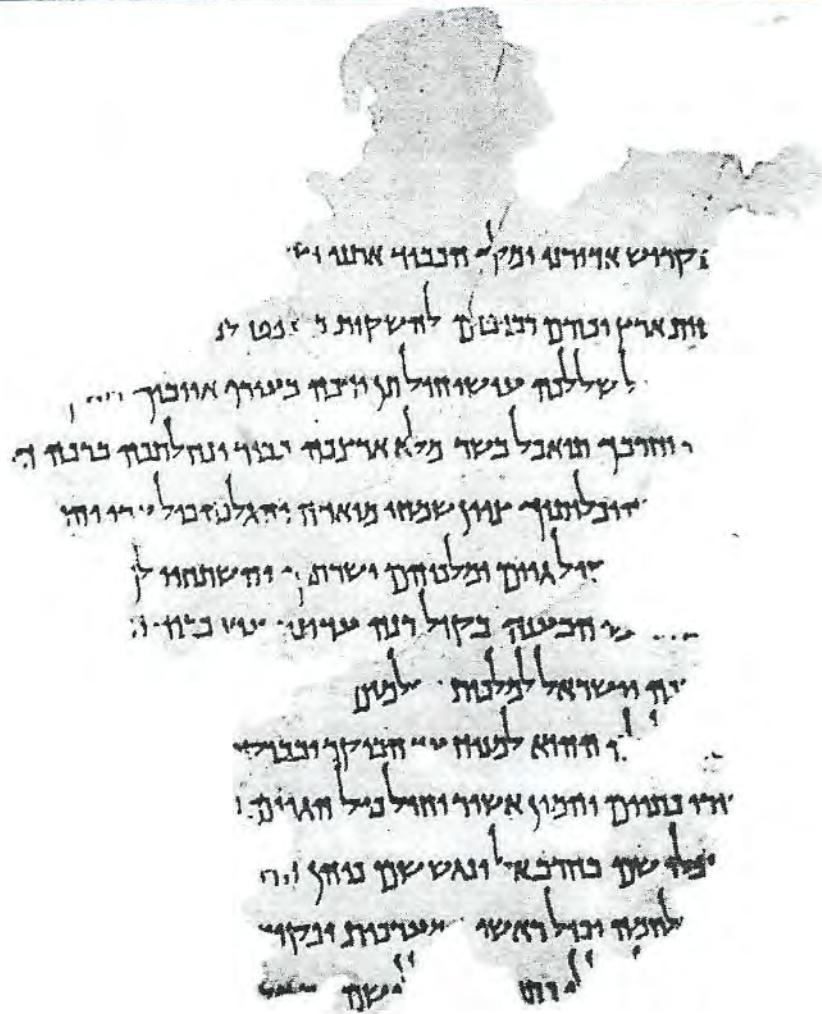 קדוש אדירנו ומלך הכבוד אתנו
ארץ וכזרם רביבים להשקות מ שפט לכ
שללכה עושי חיל תן ידכה בעורף אויביך
וחרבך תואכל בשר מלא ארצכה כבוד ונחלתכה ברכה
היכלותיך ציון שמחי מואדה והגלנה כול ערי
חיל גוים ומלכיהם ישרת והשתחוו ל
הבענה בקול רנה עדינ עדי כבוד
וישראל למלכות עולמים
ההוא למנוח עד הבוקר ובבוק
כתיים והמון אשור וחיל כול הגויים
שם בחרב אל ונגש שם כוהן
לחמה וכול ראשי מערכות ופקוד